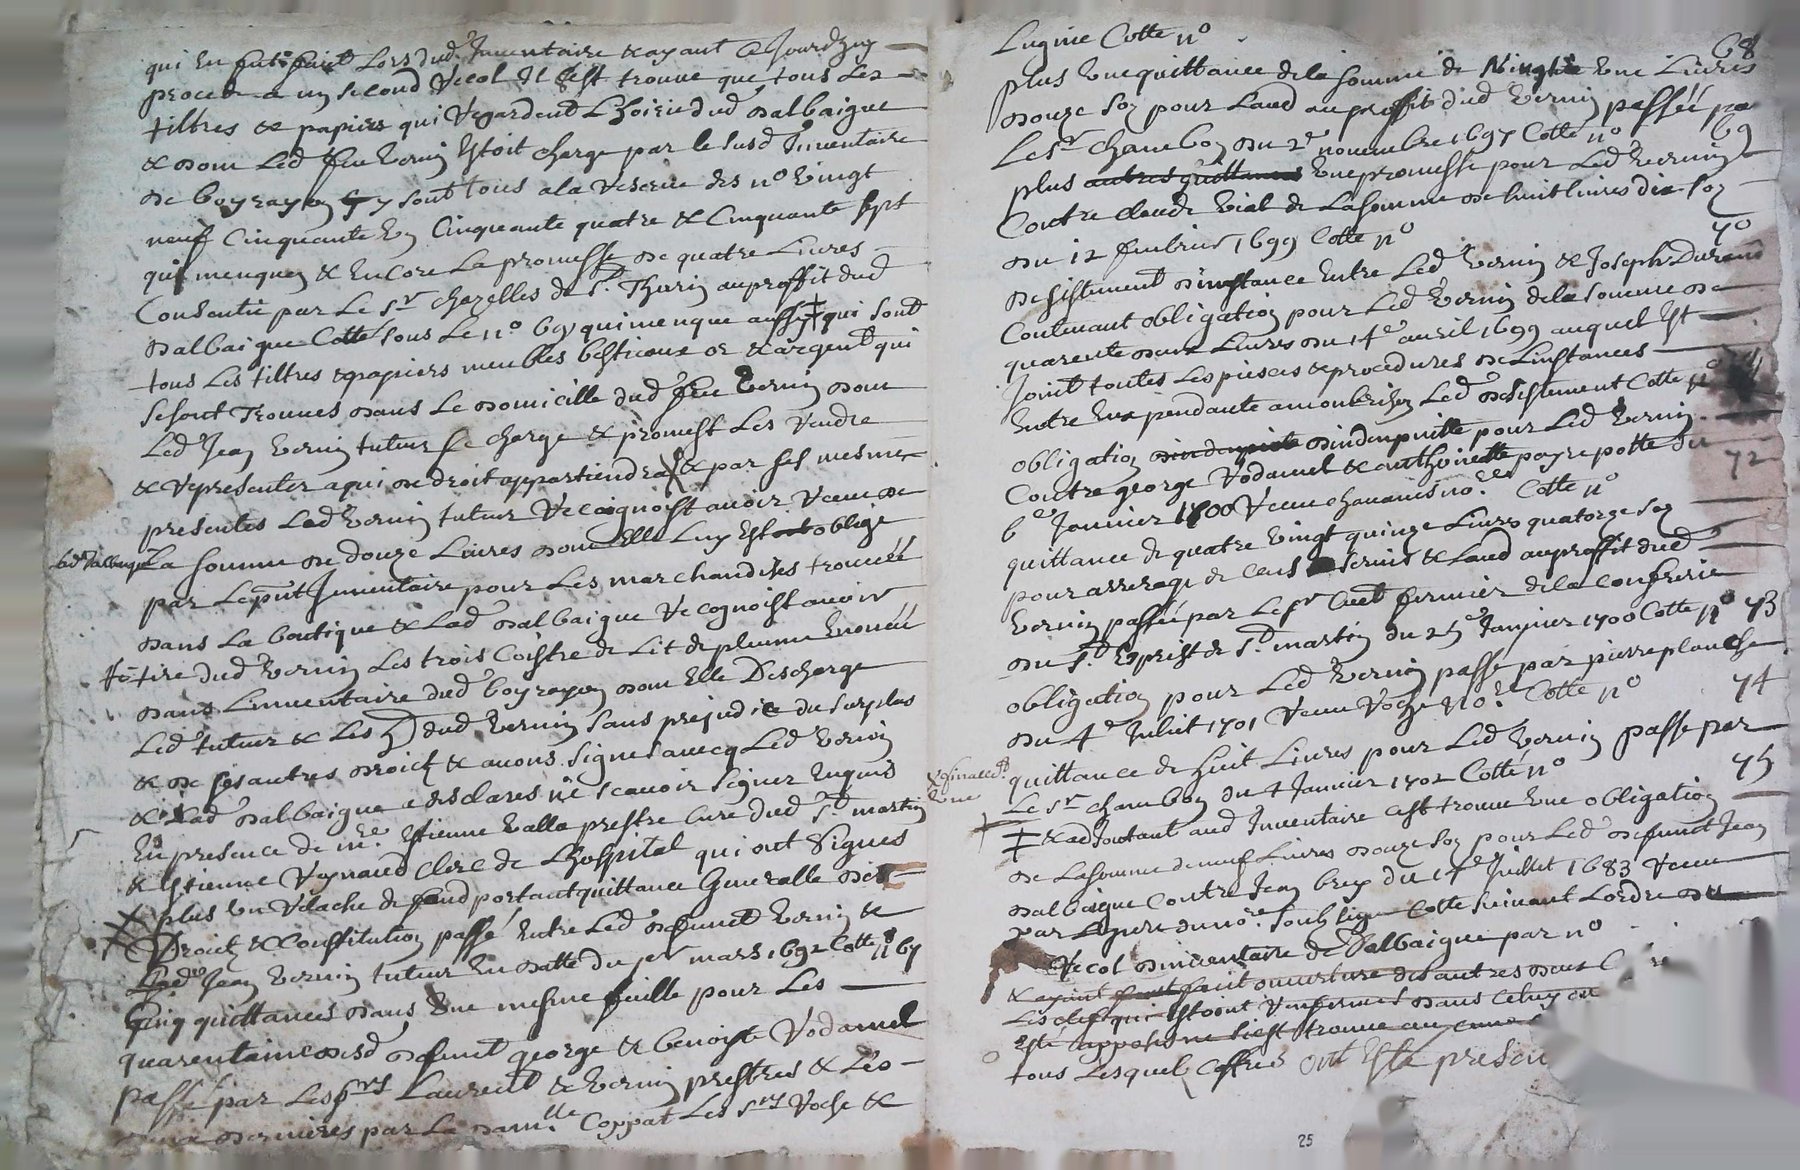 qui en fut fait Lors dud Inventaire & ayant aJourdhuy
procede a un second Recol Il sest trouve que tous Les
tiltres & papiers qui Regardent Lhoirie dud Dalbaigue
& dont Led feu Verniy Estoit charge par le susd Inventaire
de boyrayoy sy sont tous a la Reserve des no Vingt
neuf Cinquante Un Cinquante quatre & Cinquante sept
qui menquey & Encore La promesse de quatre Livres
Consentie par Le Sr Chazelles de St Thuriy au proffit dud
Dalbaigue Cotte sous Le no 69 qui menque aussy qui sont
tous Les tiltres & papiers meubles bestiaux or & argent qui
se sont Trouves dans Le domicille dud feu Verniy dont
Led Jean Verniy tuteur se charge & promest Les Rendre
& Representer a qui de droit appartiendra & par ses mesmes
presentes Led Verniy tuteur Recoignoist avoir Receu de
lad Dalbaigue La somme de douze Livres dont Elle Luy Est oblige
par Le pnt Inventaire pour Les marchandises trouvéé
dans La boutique & Lad Dalbaigue Recognoist avoir
retire dud Verniy Les trois Coistre de Lit de plume Enoncéé
dans Linventaire dud boyrayoy dont Elle Descharge
Led tuteur & Les dud Verniy sans prejudice du surplus
& de ses autres droict & avons signes avecq Led Verniy
& Lad Dalbaigue a desclares ne scavoir signer Enquis
En presence de me Estienne Valla prestre Cure dud St martiy
& Estienne Reynaud Clerc de Lhospital qui ont Signes
plus un Relache de fond portant quittance Generalle de
Droict & Constitution passé Entre Led defunct Verniy &
Led Jean Verniy tuteur En datte du 1er mars 1692 Cotte no 67
Cinq quittances dans Une mesme feuille pour Les
quarentaine desd defunct george & benoiste Rodamel
passé par Les srs Laurent & Verniy prestres & Les
deux dernieres par La damlle Coppat Les srs Roche &
Lugnie Cotte no 68
plus Une quittance de la somme de Vingt Une Livres
douze soz pour Laud au proffit dud Verniy passéé par
Le sr Chamboy du 2e novembre 1697 Cotte no 69
plus autres quittances Une promesse pour Led Verniy
Contre claude Vial de La somme de huit livres dix soz
du 12 fevrier 1699 Cotte no 70
desistement dinstance Entre Led Verniy & Joseph Durand
Contenant obligation pour Led Verniy de la somme de
quarente deux Livres du 14e avril 1699 auquel Est
Joint toutes Les pieces & procedures de Linstances
Entre Eux pendante a montbrizoy Led desistement Cotte no 71
obligation dindempnite pour Led Verniy
Contre george Rodamel & anthoinette payre potte du
6e Janvier 1700 Receu chavanis nore Cotte no 72
quittance de quatre Vingt quinze Livres quatorze soz
pour arrerage de Cens servis & Laud au proffit dud
Verniy passéé par Le sr Cuet fermier de la Confrerie
du St Esprist de St martiy du 25e Janvier 1700 Cotte no 73
obligation pour Led Verniy passe par pierre planche
du 4e Julliet 1701 Receu Roche nore Cotte no 74
quittance de huit Livres pour Led Verniy passe par
Le sr Chamboy du 4 Janvier 1702 Cotte no 75
& adjoutant aud Inventaire cest trouve Une obligation
de La somme de neuf Livres douze soz pour Led defunct Jean
Dalbaigue Contre Jean brey du 14e Juillet 1683 Receu
par Lignere nore soubsigne Cotte suivant Lordre du
Recol dinventaire de Dalbaigue par no
& ayant fait ouverture des autres deux
Les clefs qui Estoint Renfermes dans Celuy ou
este appose ne sest trouve aucune
tous Lesquels Coffres ont Este
25